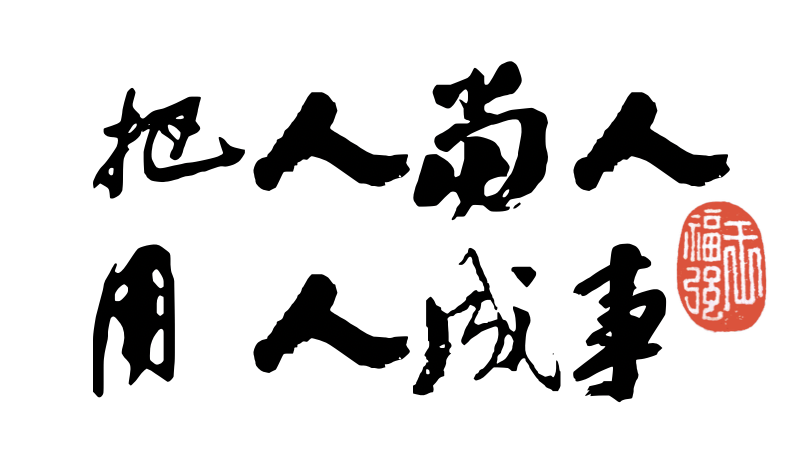 把人当人
用人成事
福强